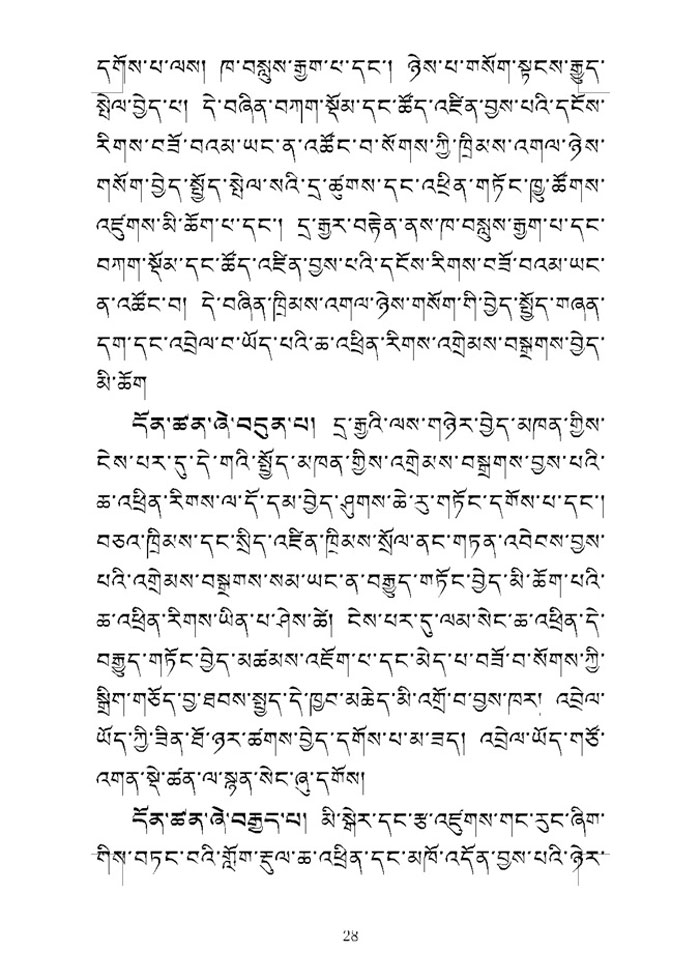 དགོས་པ་ལས། ཁ་བསླུས་རྒྱག་པ་དང་། ཉེས་པ་གསོག་སྟངས་རྒྱུད་
སྤེལ་བྱེད་པ། དེ་བཞིན་བཀག་སྡོམ་དང་ཚོད་འཛིན་བྱས་པའི་དངོས་
རིགས་བཟོ་བའམ་ཡང་ན་འཚོང་བ་སོགས་ཀྱི་ཁྲིམས་འགལ་ཉེས་
གསོག་བྱེད་སྤྱོད་སྤེལ་སའི་དྲ་ཚུགས་དང་འཕྲིན་གཏོང་ཁྱུ་ཚོགས་
འཛུགས་མི་ཆོག་པ་དང་། དྲ་རྒྱར་བརྟེན་ནས་ཁ་བསླུས་རྒྱག་པ་དང་
བཀག་སྡོམ་དང་ཚོད་འཛིན་བྱས་པའི་དངོས་རིགས་བཟོ་བའམ་ཡང་
ན་འཚོང་བ། དེ་བཞིན་ཁྲིམས་འགལ་ཉེས་གསོག་གི་བྱེད་སྤྱོད་གཞན་
དག་དང་འབྲེལ་བ་ཡོད་པའི་ཆ་འཕྲིན་རིགས་འགྲེམས་བསྒྲགས་བྱེད་
མི་ཆོག
དོན་ཚན་ཞེ་བདུན་པ། དྲ་རྒྱའི་ལས་གཉེར་བྱེད་མཁན་གྱིས་
ངེས་པར་དུ་དེ་གའི་སྤྱོད་མཁན་གྱིས་འགྲེམས་བསྒྲགས་བྱས་པའི་
ཆ་འཕྲིན་རིགས་ལ་དོ་དམ་བྱེད་ཤུགས་ཆེ་རུ་གཏོང་དགོས་པ་དང་།
བཅའ་ཁྲིམས་དང་སྲིད་འཛིན་ཁྲིམས་སྲོལ་ནང་གཏན་འབེབས་བྱས་
པའི་འགྲེམས་བསྒྲགས་སམ་ཡང་ན་བརྒྱུད་གཏོང་བྱེད་མི་ཆོག་པའི་
ཆ་འཕྲིན་རིགས་ཡིན་པ་ཤེས་ཚེ། ངེས་པར་དུ་ལམ་སེང་ཆ་འཕྲིན་དེ་
བརྒྱུད་གཏོང་བྱེད་མཚམས་འཇོག་པ་དང་མེད་པ་བཟོ་བ་སོགས་ཀྱི་
སྒྲིག་གཅོད་བྱ་ཐབས་སྤྱད་དེ་ཁྱབ་མཆེད་མི་འགྲོ་བ་བྱས་ཁར། འབྲེལ་
ཡོད་ཀྱི་ཟིན་ཐོ་ཉར་ཚགས་བྱེད་དགོས་པ་མ་ཟད། འབྲེལ་ཡོད་གཙོ་
འགན་སྡེ་ཚན་ལ་སྙན་སེང་ཞུ་དགོས།
དོན་ཚན་ཞེ་བརྒྱད་པ། མི་སྒེར་དང་རྩ་འཛུགས་གང་རུང་ཞིག་
གིས་བཏང་བའི་གློག་རྡུལ་ཆ་འཕྲིན་དང་མཁོ་འདོན་བྱས་པའི་ཉེར་
28